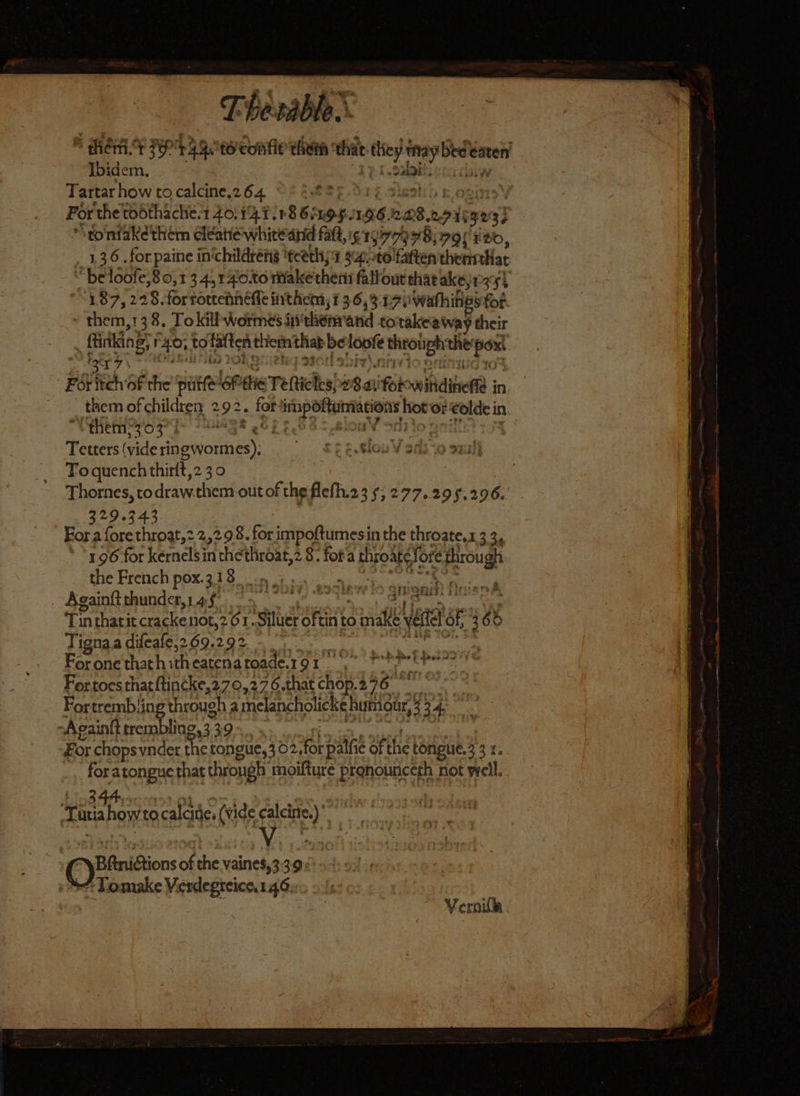 The table.
them. to confit them that they may bee eaten
Ibidem.
Tartar how to calcine, 264
For the toothache.
to make them cleane white and fast,
136. for paine in childrens teeth, to fasten them that
be loose, 80, 134, 140. to make them fall out that ake,
187, 228. for rottennesse in them, 136, washings for
them, 138. To kill wormes in them and to take away their
stinking, 140, to fasten them that be loose through the pox
For itch of the purse of the Testicles, for windinesse in
them of children 292. for impostumations hot or colde in
them, 303
Tetters (vide ringwormes).
To quench thirst, 230
Thornes, to draw them out of the flesh. 235, 277. 295. 296.
329. 343
For a sore throat, 22, 298. for impostumes in the throate, 133,
196 for kernels in the throat, 28. for a throate sore through
the French pox. 318
Against thunder, 145.
Tin that it cracke not, 261. Siluer of tin to make vessel of, 366
Tignaa disease, 269. 292
For one that hath eaten a toade. 191
For toes that stincke, 270, 276. that chop. 276
For trembling through a melancholicke humour, 334.
Against trembling, 339.
For chops vnder the tongue, 302, for palsie of the tongue. 331.
for a tongue that through moisture pronounceth not well.
344.
Tutia how to calcine. (vide calcine.)
V.
OBstructions of the vaines, 339
To make Verdegreice. 146.
Vernish